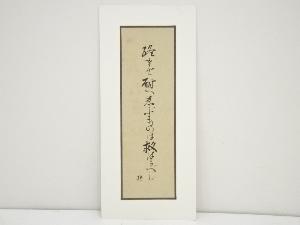 終まで耐へ忍ぶものは救はるべし